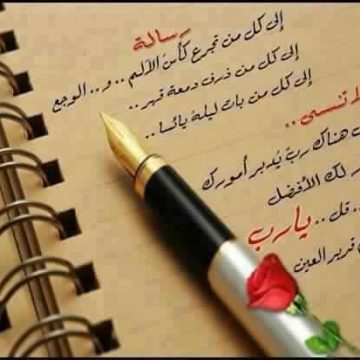 رسالة
إلى كل من تجرع كأس الألم .. و .. الوجع
إلى كل من ذرف دمعة قهر ..
إلى كل من بات ليلة يائسا ..
تنسى ..
هناك رب يُدبر أمورك
لك الأفضل
قل .. يارب
قرير العين